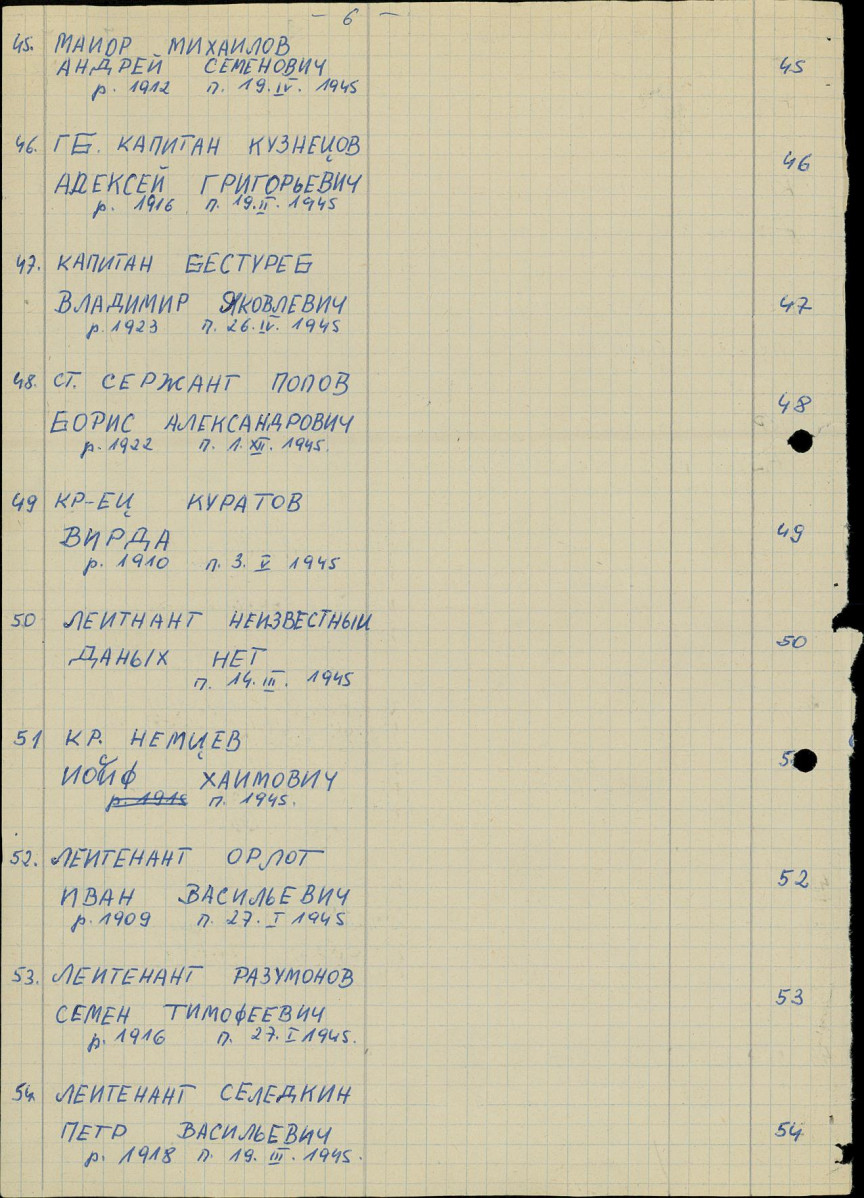 — 6 —
45. МАИОР МИХАИЛОВ 45
АНДРЕЙ СЕМЕНОВИЧ
р. 1912 п. 19. IV. 1945
46. ГБ. КАПИТАН КУЗНЕЦОВ 46
АЛЕКСЕЙ ГРИГОРЬЕВИЧ
р. 1916 п. 19. II. 1945
47. КАПИТАН БЕСТУРЕБ
ВЛАДИМИР ЯКОВЛЕВИЧ 47
р. 1923 п. 26. IV. 1945
48. СТ. СЕРЖАНТ ПОПОВ 48
БОРИС АЛЕКСАНДРОВИЧ
р. 1922 п. 1. XII. 1945.
49 КР-ЕЦ КУРАТОВ
ВИРДА 49
р. 1910 п. 3. V 1945
50 ЛЕИТНАНТ НЕИЗВЕСТНЫИ
ДАНЫХ НЕТ 50
п. 14. III. 1945
51 КР. НЕМЦЕВ
ИОСИФ ХАИМОВИЧ
р. 1915 п. 1945.
52. ЛЕИТЕНАНТ ОРЛОТ
ИВАН ВАСИЛЬЕВИЧ 52
р. 1909 п. 27. I 1945
53. ЛЕИТЕНАНТ РАЗУМОНОВ
СЕМЕН ТИМОФЕЕВИЧ 53
р. 1916 п. 27. I 1945.
54. ЛЕИТЕНАНТ СЕЛЕДКИН
ПЕТР ВАСИЛЬЕВИЧ 54
р. 1918 п. 19. III. 1945.